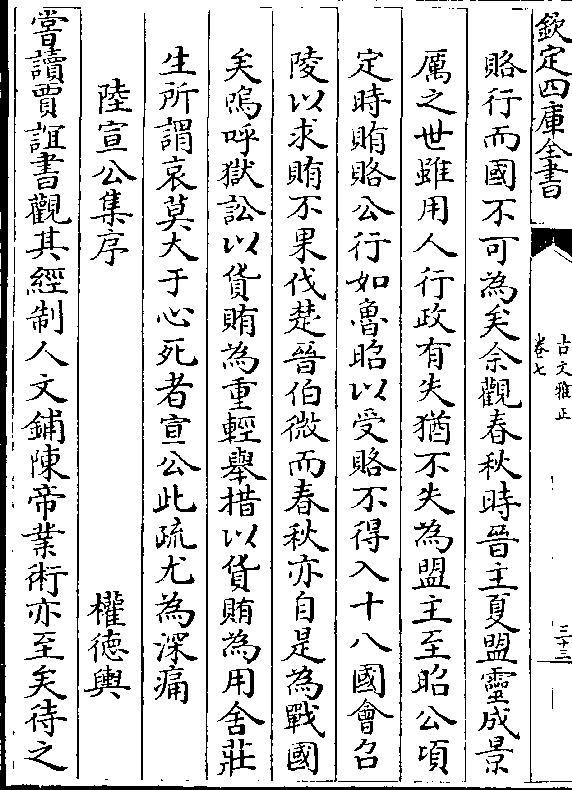 欽定四庫全書
古文雅正
卷七
三十三
賂行而國不可為矣余觀春秋時晉主夏盟靈成景
厲之世雖用人行政有失猶不失為盟主至昭公頃
定時賄賂公行如魯昭以受賂不得入十八國會召
陵以求賄不果伐楚晉伯微而春秋亦自是為戰國
矣嗚呼獄訟以貨賄為重輕舉措以貨賄為用舍莊
生所謂哀莫大于心死者宣公此疏尤為深痛
陸宣公集序　權德輿
嘗讀賈誼書觀其經制人文鋪陳帝業術亦至矣待之